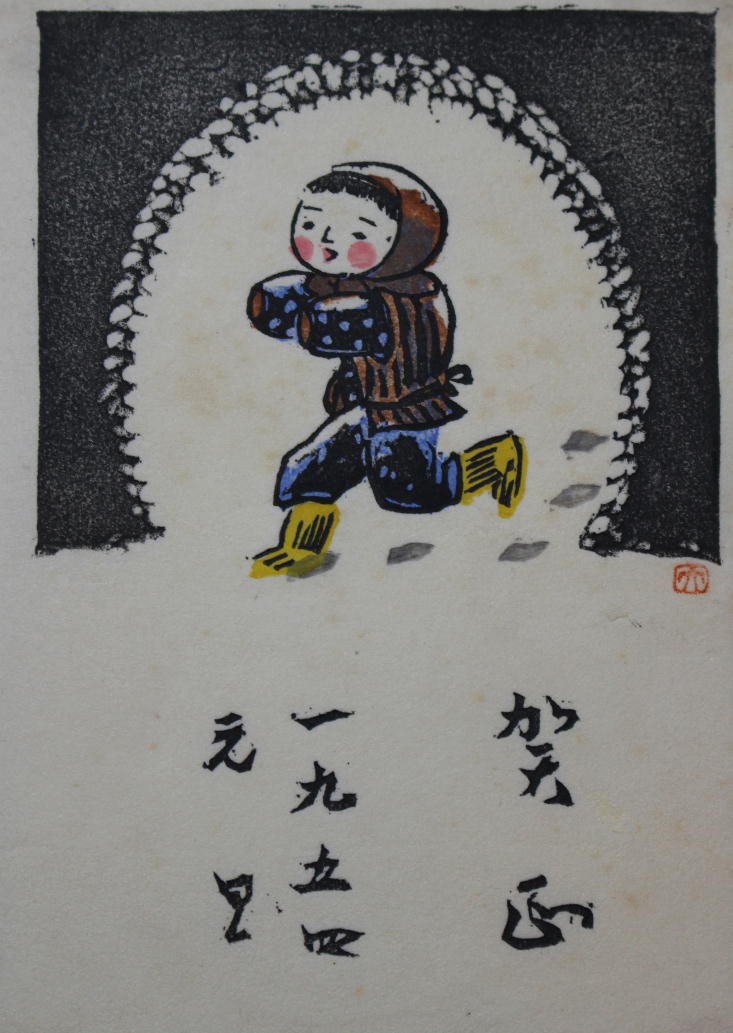 賀正
一九五四
元旦